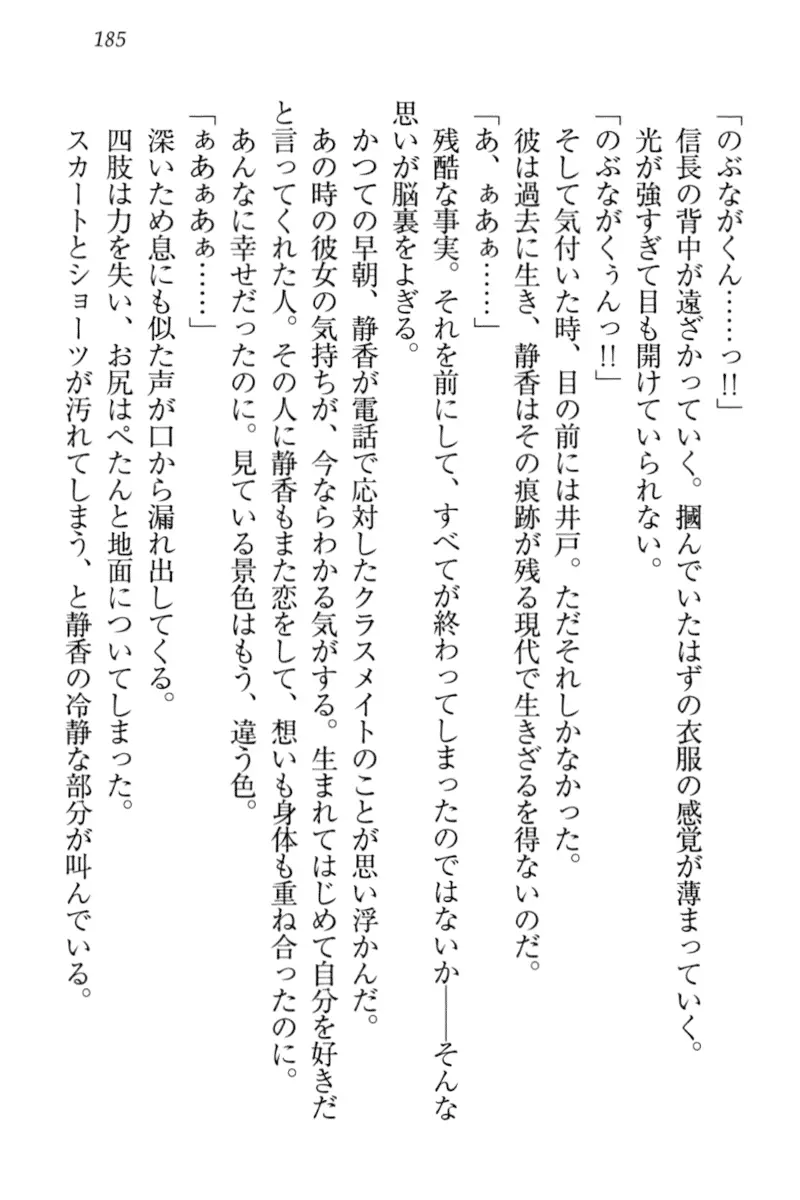 185
「のぶながくん……っ!!」
信長の背中が遠ざかっていく。摑んでいたはずの衣服の感覚が薄まっていく。
光が強すぎて目も開けていられない。
「のぶながくぅんっ!!」
そして気付いた時、目の前には井戸。ただそれしかなかった。
彼は過去に生き、静香はその痕跡が残る現代で生きざるを得ないのだ。
「あ、ぁあぁ……」
残酷な事実。それを前にして、すべてが終わってしまったのではないか――そんな
思いが脳裏をよぎる。
かつての早朝、静香が電話で応対したクラスメイトのことが思い浮かんだ。
あの時の彼女の気持ちが、今ならわかる気がする。生まれてはじめて自分を好きだ
と言ってくれた人。その人に静香もまた恋をして、想いも身体も重ね合ったのに。
あんなに幸せだったのに。見ている景色はもう、違う色。
「ぁあぁあぁ……」
深いため息にも似た声が口から漏れ出してくる。
四肢は力を失い、お尻はぺたんと地面についてしまった。
スカートとショーツが汚れてしまう、と静香の冷静な部分が叫んでいる。